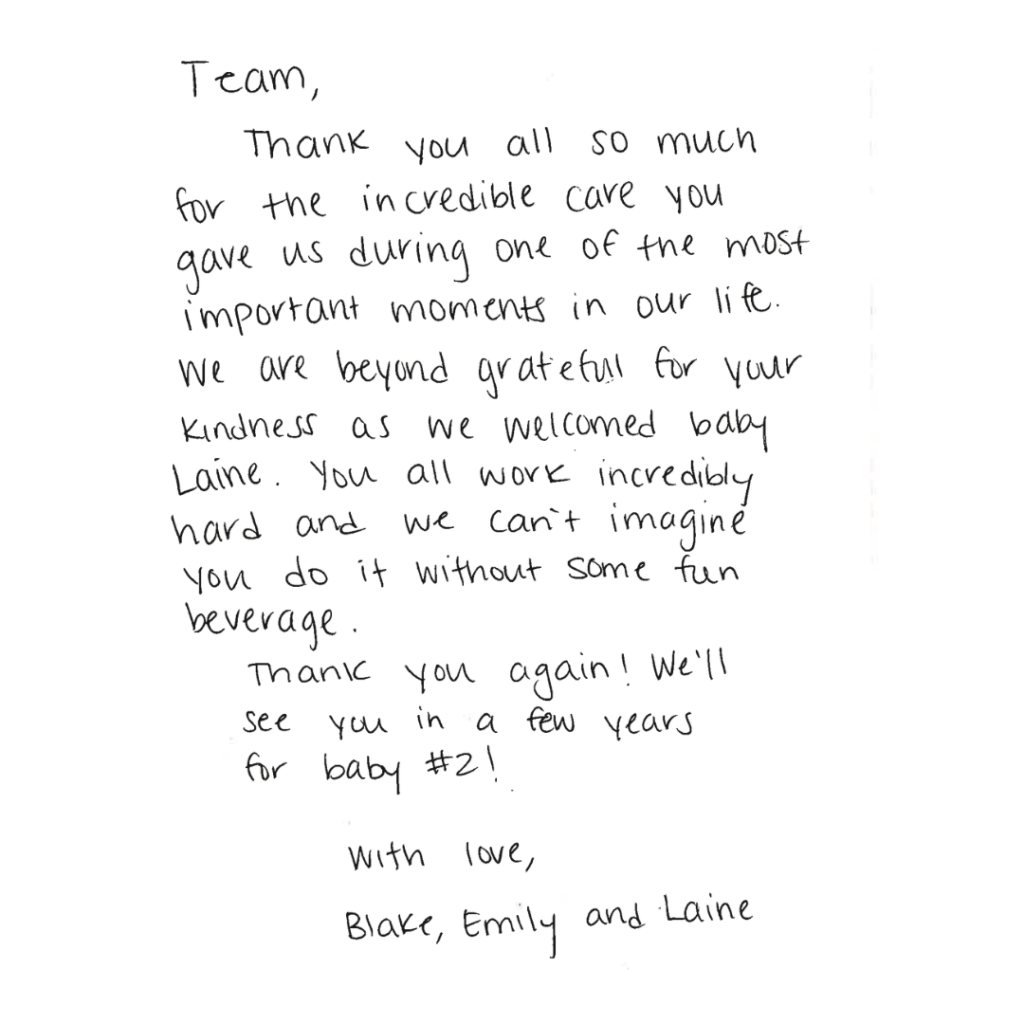 Team,
Thank you all so much
for the incredible care you
gave us during one of the most
important moments in our life.
We are beyond grateful for your
kindness as we welcomed baby
Laine. You all work incredibly
hard and we can't imagine
you do it without some fun
beverage.
Thank you again! We'll
see you in a few years
for baby #2!
With love,
Blake, Emily and Laine